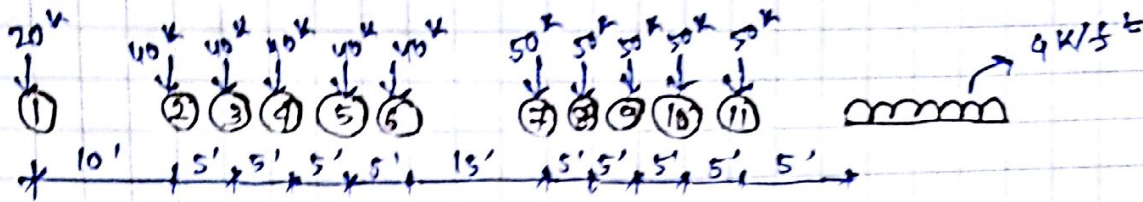 20ᴷ 40ᴷ 40ᴷ 40ᴷ 40ᴷ 40ᴷ 50ᴷ 50ᴷ 50ᴷ 50ᴷ 50ᴷ
① ② ③ ④ ⑤ ⑥ ⑦ ⑧ ⑨ ⑩ ⑪
10' 5' 5' 5' 5' 15' 5' 5' 5' 5' 5'